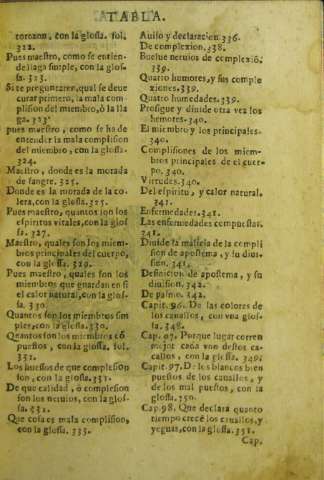 TABLA.
torozon, con la glossa. fol.
322.
Pues maestro, como se entien-
de llaga simple, con la glos-
sa. 323.
Si te preguntaren, qual se deue
curar primero, la mala com
plision del miembro, ò la lla
ga. 323
pues maestro, como se ha de
entender la mala complision
del miembro, con la glossa.
324.
Maestro, donde es la morada
de sangre. 325.
Donde es la morada de la co-
lera, con la glossa. 325.
Pues maestro, quantos son los
espiritus vitales, con la glos
sa. 327.
Maestro, quales son los miem-
bros principales del cuerpo,
con la glossa. 329.
Pues maestro, quales son los
miembros que guardan en si
el calor natural, con la glos-
sa. 330
Quantos son los miembros sim
ples, con la glossa. 330.
Quantos son los miembros cō
puestos, con la glossa. fol.
331.
Los huessos de que complesion
son, con la glossa. 331.
De que calidad, ò complesion
son los neruios, con la glos-
sa. 332.
Que cosa es mala complision,
con la glosa. 335.
Auiso y declaracion. 336.
De complexion. 338.
Buelue neruios de complexiō.
339.
Quatro humores, y sus comple
xiones. 339.
Quatro humedades. 339.
Prosigue y diuide otra vez los
humores. 340.
El miembro y los principales.
340.
Complisiones de los miem-
bros principales de el cuer-
po. 340.
Virtudes. 340.
Del espiritu, y calor natural.
341.
Enfermedades. 341.
Las enfermedades compuestas.
341.
Diuide la materia de la compli
sion de apostema, y su diui-
sion. 341.
Definicion de apostema, y su
diuision. 342.
De palmo. 342.
Capit. 96. De las colores de
los cauallos, con vna glos-
sa. 348.
Cap. 97. Porque lugar corren
mejor cada vno destos ca-
uallos, con la glossa. 349.
Capit. 97. De los blancos bien
puestos de los cauallos, y
de los mal puestos, con la
glossa. 350.
Cap. 98. Que declara quanto
tiempo crecē los cauallos, y
yeguas, con la glossa. 351.
Cap.